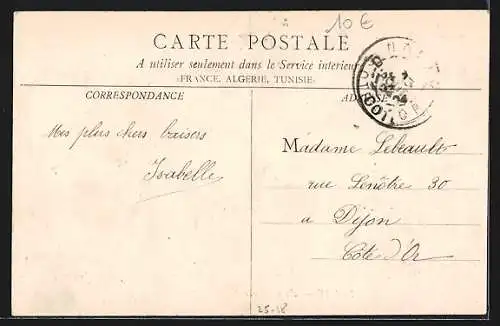 10 €
CARTE POSTALE
A utiliser seulement dans le Service intérieur
(FRANCE, ALGERIE, TUNISIE)
CORRESPONDANCE
Mes plus chers baisers
Isabelle
Madame Lebeault
rue Lenôtre 30
a Dijon
Côte d'Or
25-18